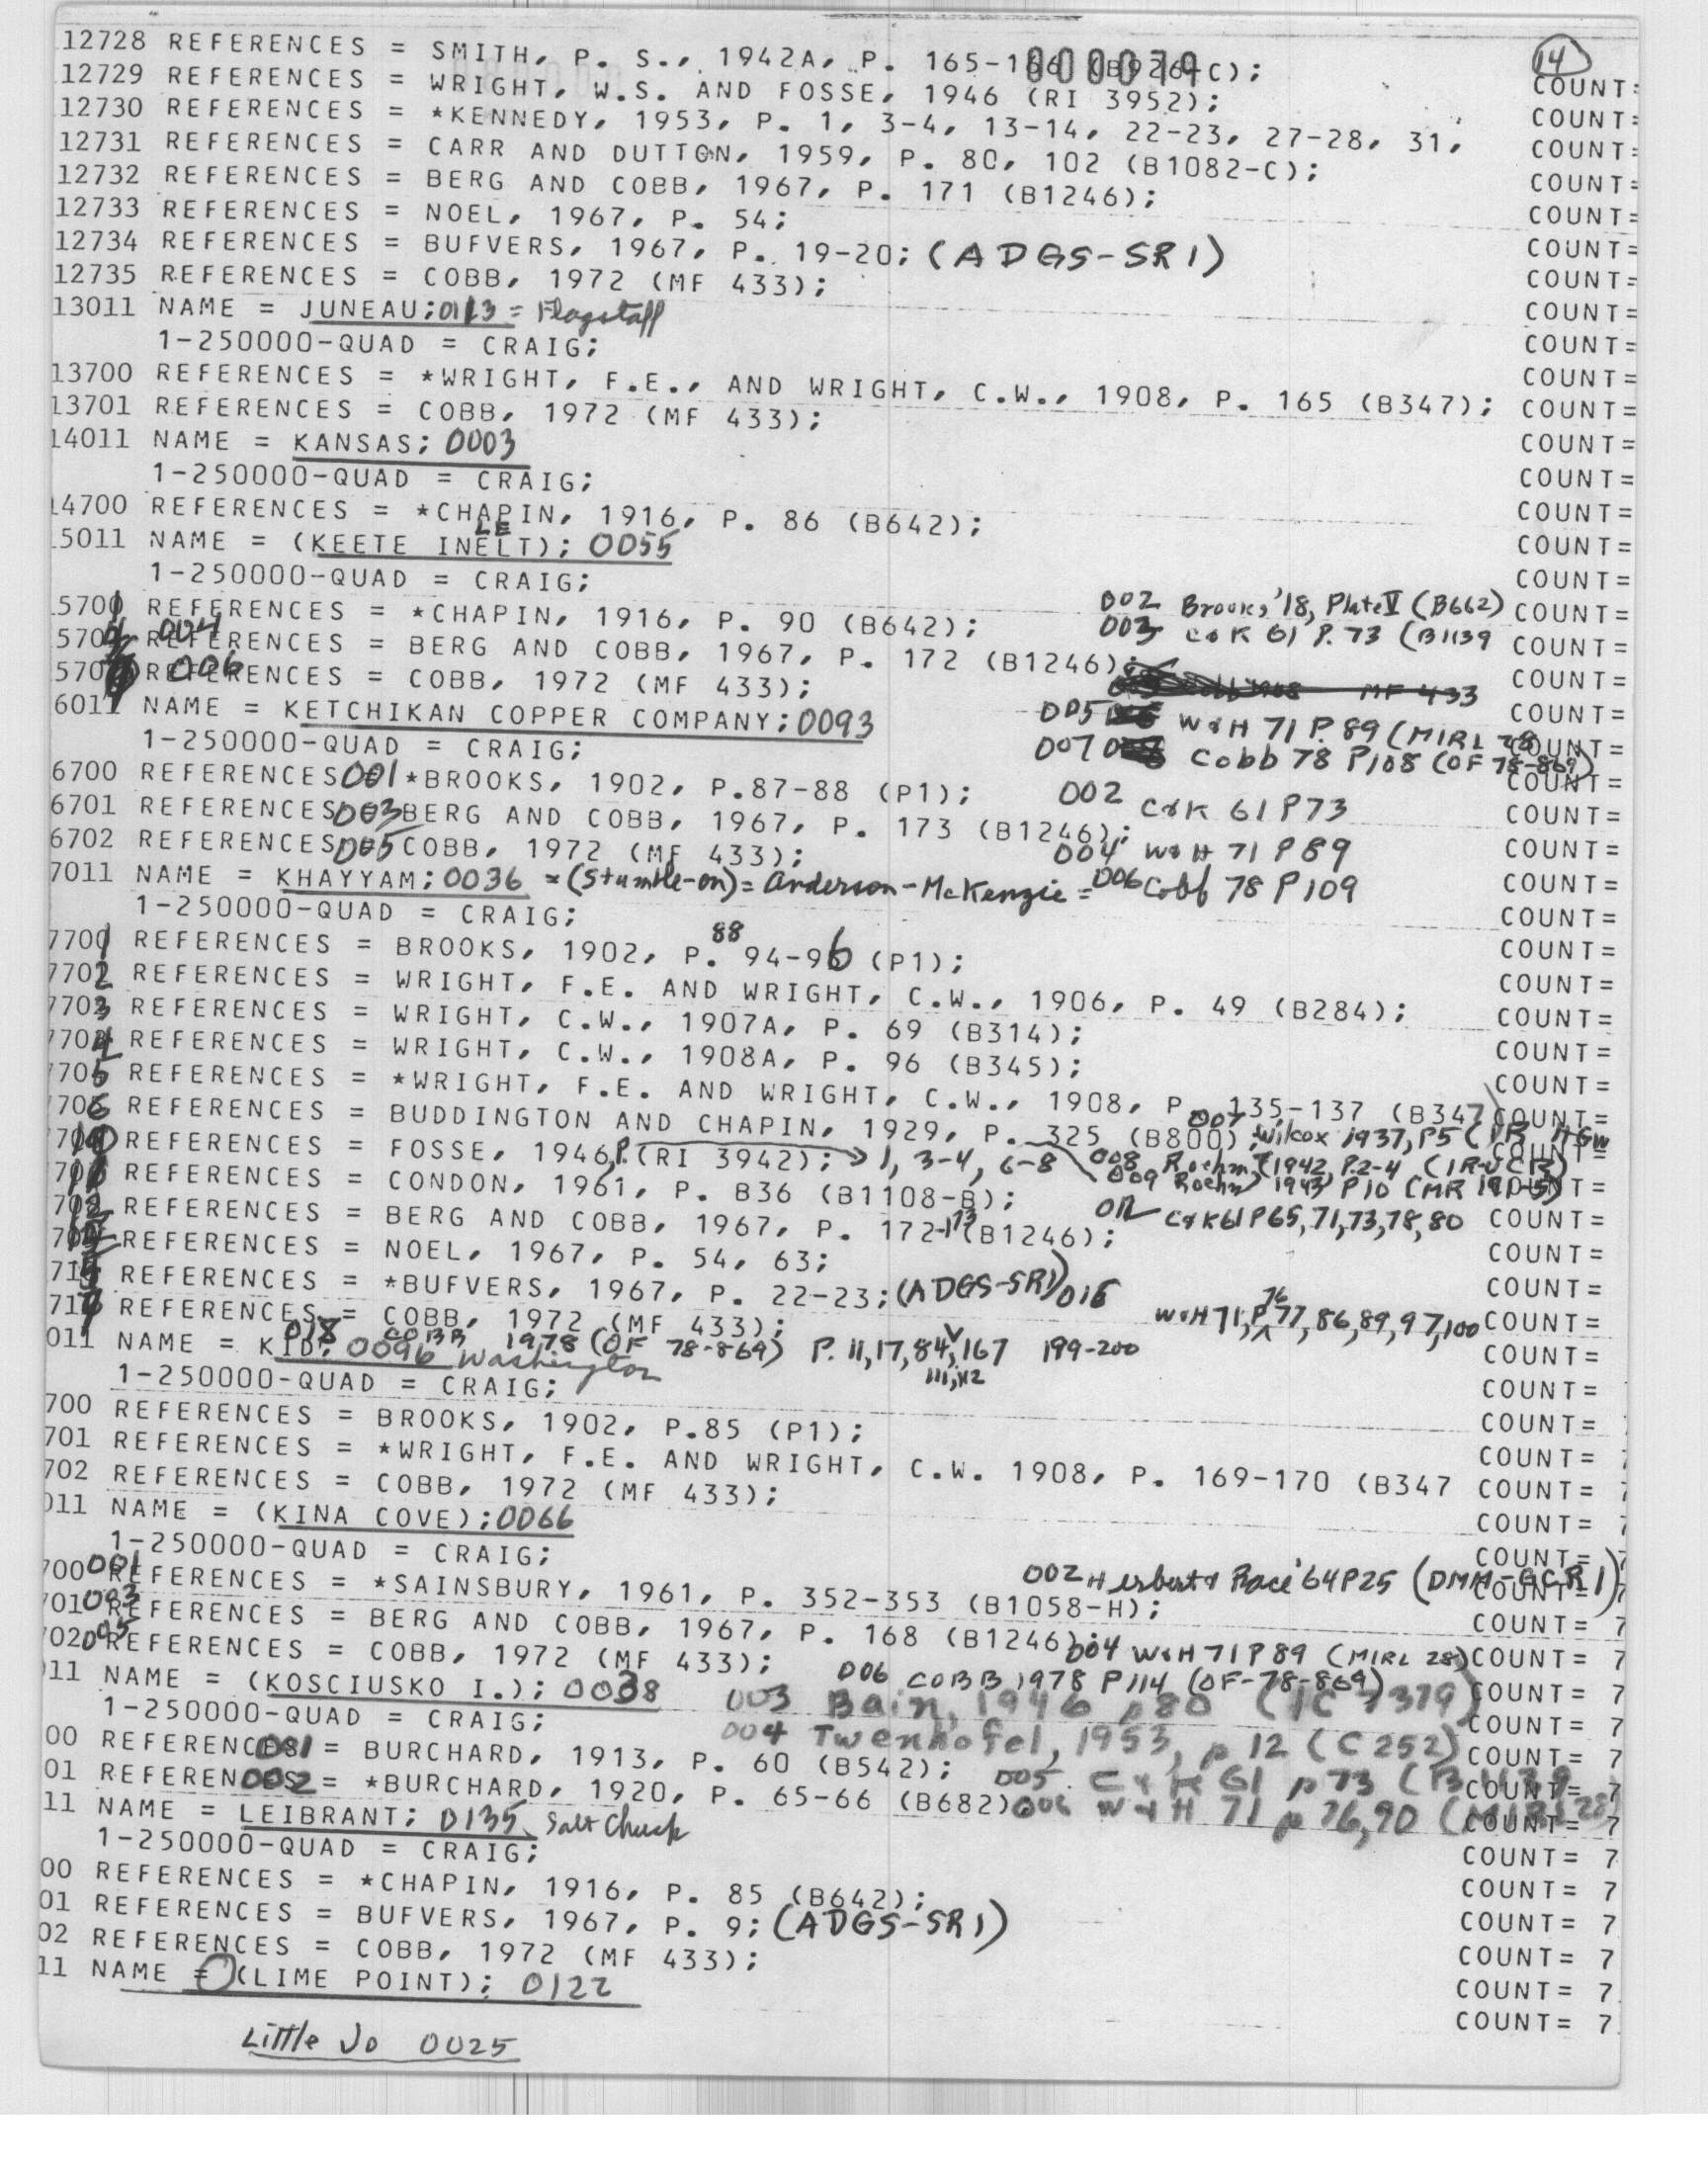 000079
14
12728 REFERENCES = SMITH, P. S., 1942A, P. 165-166 (B926-C); COUNT=
12729 REFERENCES = WRIGHT, W.S. AND FOSSE, 1946 (RI 3952); COUNT=
12730 REFERENCES = *KENNEDY, 1953, P. 1, 3-4, 13-14, 22-23, 27-28, 31, COUNT=
12731 REFERENCES = CARR AND DUTTON, 1959, P. 80, 102 (B1082-C); COUNT=
12732 REFERENCES = BERG AND COBB, 1967, P. 171 (B1246); COUNT=
12733 REFERENCES = NOEL, 1967, P. 54; COUNT=
12734 REFERENCES = BUFVERS, 1967, P. 19-20; (ADGS-SR1) COUNT=
12735 REFERENCES = COBB, 1972 (MF 433); COUNT=
13011 NAME = JUNEAU; 0113 = Flagstaff COUNT=
1-250000-QUAD = CRAIG; COUNT=
13700 REFERENCES = *WRIGHT, F.E., AND WRIGHT, C.W., 1908, P. 165 (B347); COUNT=
13701 REFERENCES = COBB, 1972 (MF 433); COUNT=
14011 NAME = KANSAS; 0003 COUNT=
1-250000-QUAD = CRAIG; COUNT=
14700 REFERENCES = *CHAPIN, 1916, P. 86 (B642); COUNT=
LE
15011 NAME = (KEETE INELT); 0055 COUNT=
1-250000-QUAD = CRAIG; COUNT=
002 Brooks '18, Plate V (B662)
15701 REFERENCES = *CHAPIN, 1916, P. 90 (B642); COUNT=
003 C&K 61 P. 73 (B1139
004 REFERENCES = BERG AND COBB, 1967, P. 172 (B1246); COUNT=
006 REFERENCES = COBB, 1972 (MF 433); COUNT=
MF 433
6011 NAME = KETCHIKAN COPPER COMPANY; 0093 COUNT=
005 W&H 71 P. 89 (MIRL 28
1-250000-QUAD = CRAIG; COUNT=
007 Cobb 78 P108 (OF 78-869)
6700 REFERENCES 001 *BROOKS, 1902, P.87-88 (P1); COUNT=
002 C&K 61 P73
6701 REFERENCES 003 BERG AND COBB, 1967, P. 173 (B1246); COUNT=
6702 REFERENCES 005 COBB, 1972 (MF 433); COUNT=
004 W&H 71 P89
7011 NAME = KHAYYAM; 0036 = (Stumble-on) = Anderson-McKenzie = 006 Cobb 78 P109 COUNT=
1-250000-QUAD = CRAIG; COUNT=
88
7701 REFERENCES = BROOKS, 1902, P. 94-96 (P1); COUNT=
7702 REFERENCES = WRIGHT, F.E. AND WRIGHT, C.W., 1906, P. 49 (B284); COUNT=
7703 REFERENCES = WRIGHT, C.W., 1907A, P. 69 (B314); COUNT=
7704 REFERENCES = WRIGHT, C.W., 1908A, P. 96 (B345); COUNT=
7705 REFERENCES = *WRIGHT, F.E. AND WRIGHT, C.W., 1908, P. 135-137 (B347) COUNT=
706 REFERENCES = BUDDINGTON AND CHAPIN, 1929, P. 325 (B800); COUNT=
007 Wilcox 1937, P5
REFERENCES = FOSSE, 1946, P. (RI 3942); 1, 3-4, 6-8 COUNT=
008 Roehm 1942, P.2-4
REFERENCES = CONDON, 1961, P. B36 (B1108-B); COUNT=
009 Roehm 1943 P10
REFERENCES = BERG AND COBB, 1967, P. 172-173 (B1246); COUNT=
C&K61 P65,71,73,78,80
REFERENCES = NOEL, 1967, P. 54, 63; COUNT=
REFERENCES = *BUFVERS, 1967, P. 22-23; (ADGS-SR1) 016 COUNT=
W&H 71, P 76 77, 86, 89, 97, 100
REFERENCES = COBB, 1972 (MF 433); COUNT=
018 COBB 1978 (OF 78-869) P. 11, 17, 84, 111, 112 167 199-200
011 NAME = KID; 0096 Washington COUNT=
1-250000-QUAD = CRAIG; COUNT=
700 REFERENCES = BROOKS, 1902, P.85 (P1); COUNT=
701 REFERENCES = *WRIGHT, F.E. AND WRIGHT, C.W. 1908, P. 169-170 (B347 COUNT=
702 REFERENCES = COBB, 1972 (MF 433); COUNT=
011 NAME = (KINA COVE); 0066 COUNT=
1-250000-QUAD = CRAIG; COUNT=
002 Herbert & Race '64 P25 (DMM-GCR 1)
700 001 REFERENCES = *SAINSBURY, 1961, P. 352-353 (B1058-H); COUNT= 7
701 003 REFERENCES = BERG AND COBB, 1967, P. 168 (B1246); COUNT= 7
702 005 REFERENCES = COBB, 1972 (MF 433); 004 W&H 71 P89 (MIRL 28) COUNT= 7
006 COBB 1978 P114 (OF-78-869)
011 NAME = (KOSCIUSKO I.); 0038 COUNT= 7
003 Bain, 1946 p80 (IC 7379)
1-250000-QUAD = CRAIG; COUNT= 7
004 Twenhofel, 1953, p 12 (C252)
00 REFERENCES 001 = BURCHARD, 1913, P. 60 (B542); COUNT= 7
005 C&K 61 p73 (B1139
01 REFERENCES 002 = *BURCHARD, 1920, P. 65-66 (B682); COUNT= 7
006 W&H 71 p 76,90 (MIRL 28)
11 NAME = LEIBRANT; 0135 Salt Chuck COUNT= 7
1-250000-QUAD = CRAIG; COUNT= 7
00 REFERENCES = *CHAPIN, 1916, P. 85 (B642); COUNT= 7
01 REFERENCES = BUFVERS, 1967, P. 9; (ADGS-SR1) COUNT= 7
02 REFERENCES = COBB, 1972 (MF 433); COUNT= 7
11 NAME = (LIME POINT); 0122 COUNT= 7
Little Jo 0025